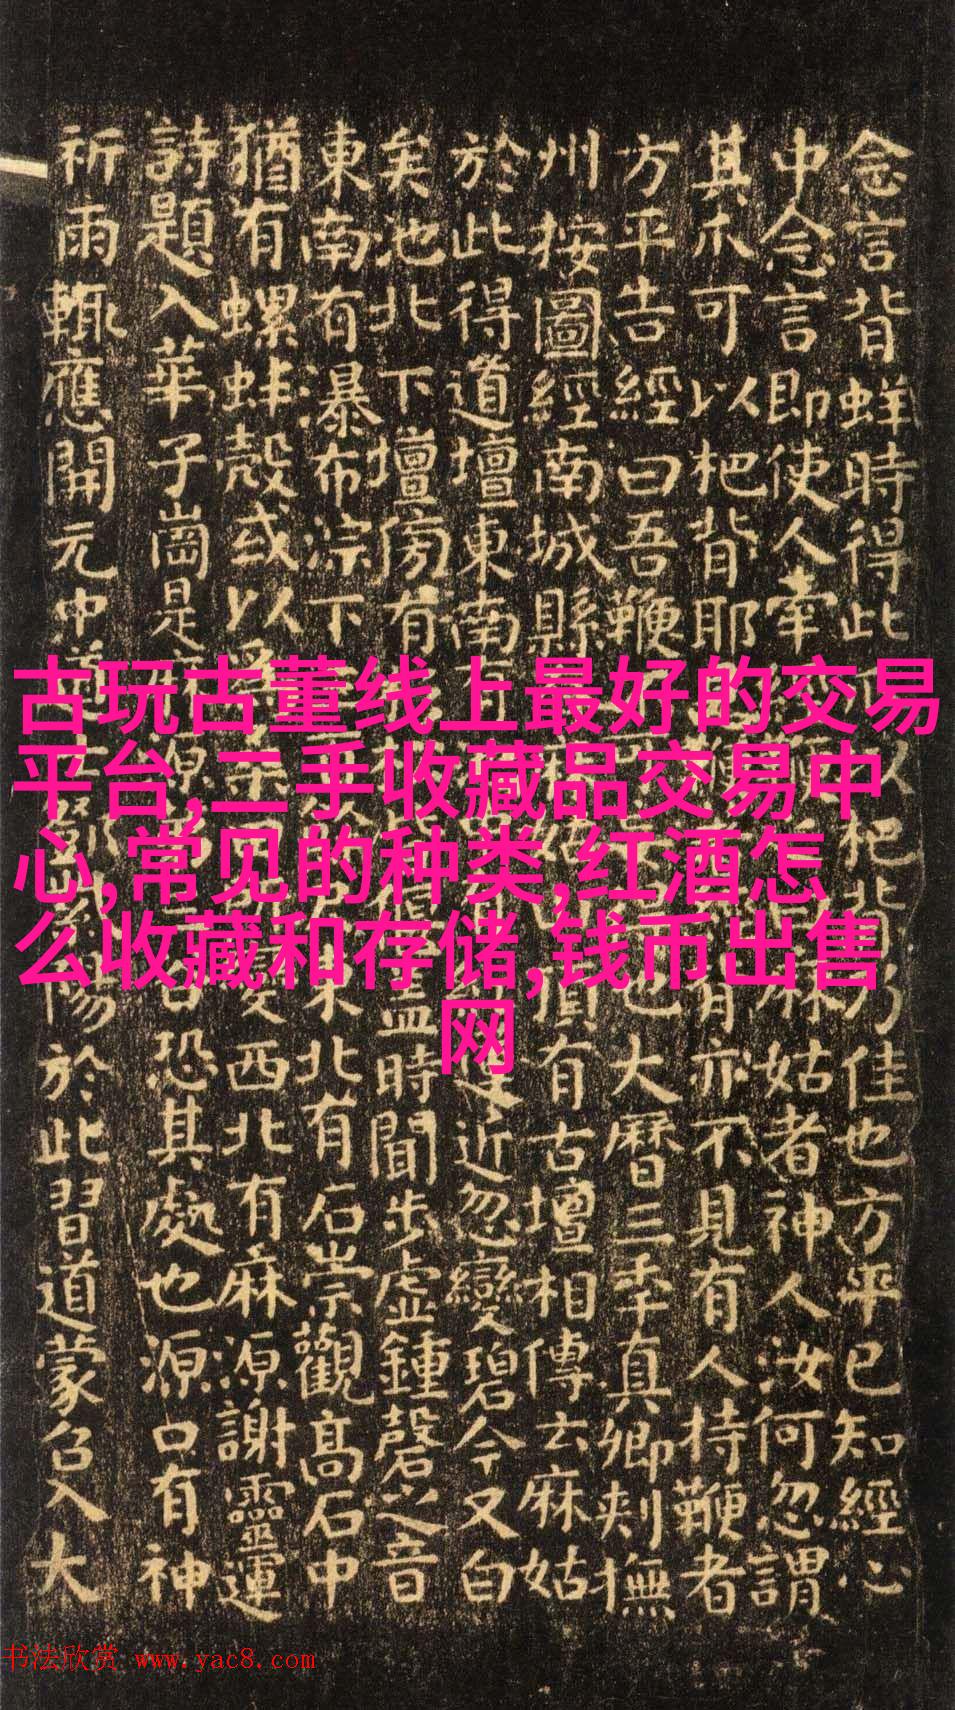 念言背蛘時得此以杷背乃佳也方平已知經心
中念言即使人牽麻姑者神人汝何忽謂
其爪可以杷背耶有亦不見有人持鞭者
方平告經曰吾鞭也大曆三年真卿刾撫
州按圖經南城縣頂有古壇相傳云麻姑
於此得道壇東南有近忽變碧今又白
矣池北下壇傍有時聞步虛鍾磬之音
東南有瀑布淙下北有石崇觀高石中
猶有螺蚌殼或以變西北有麻源謝靈運
詩題入華子崗是源恐其處也源口有神
祈雨輒應開元中道陽於此習道蒙召入大
古玩古董线上最好的交易
平台,二手收藏品交易中
心,常见的种类,红酒怎
么收藏和存储,钱币出售
网
书法欣赏 www.yac8.com